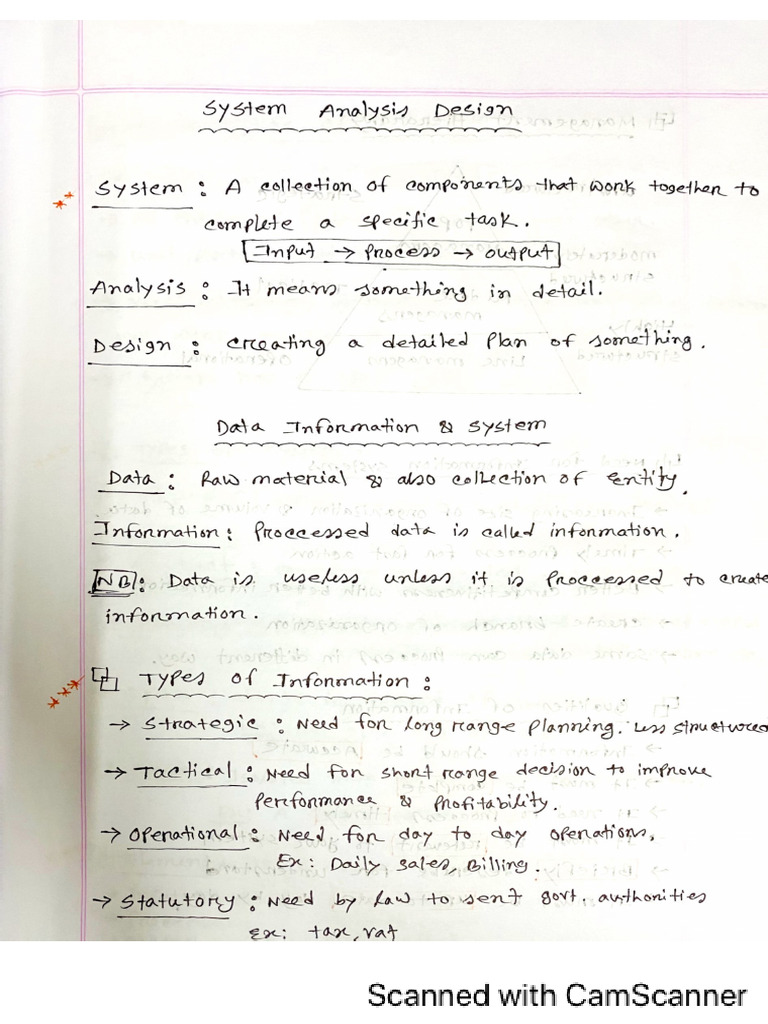 System Analysis Design
System : A collection of components that work together to
complete a specific task.
Input → Process → Output
Analysis : It means something in detail.
Design : Creating a detailed Plan of something.
Data Information & System
Data : Raw material & also collection of Entity.
Information : Proccessed data is called information.
NB : Data is useless unless it is Proccessed to create
information.
Types of Information :
→ Strategic : Need for long range planning. Less structured
→ Tactical : Need for short range decision to improve
Performance & Profitability.
→ Operational : Need for day to day operations,
Ex : Daily sales, Billing.
→ Statutory : Need by law to sent govt. authorities
Ex : tax, vat
Scanned with CamScanner